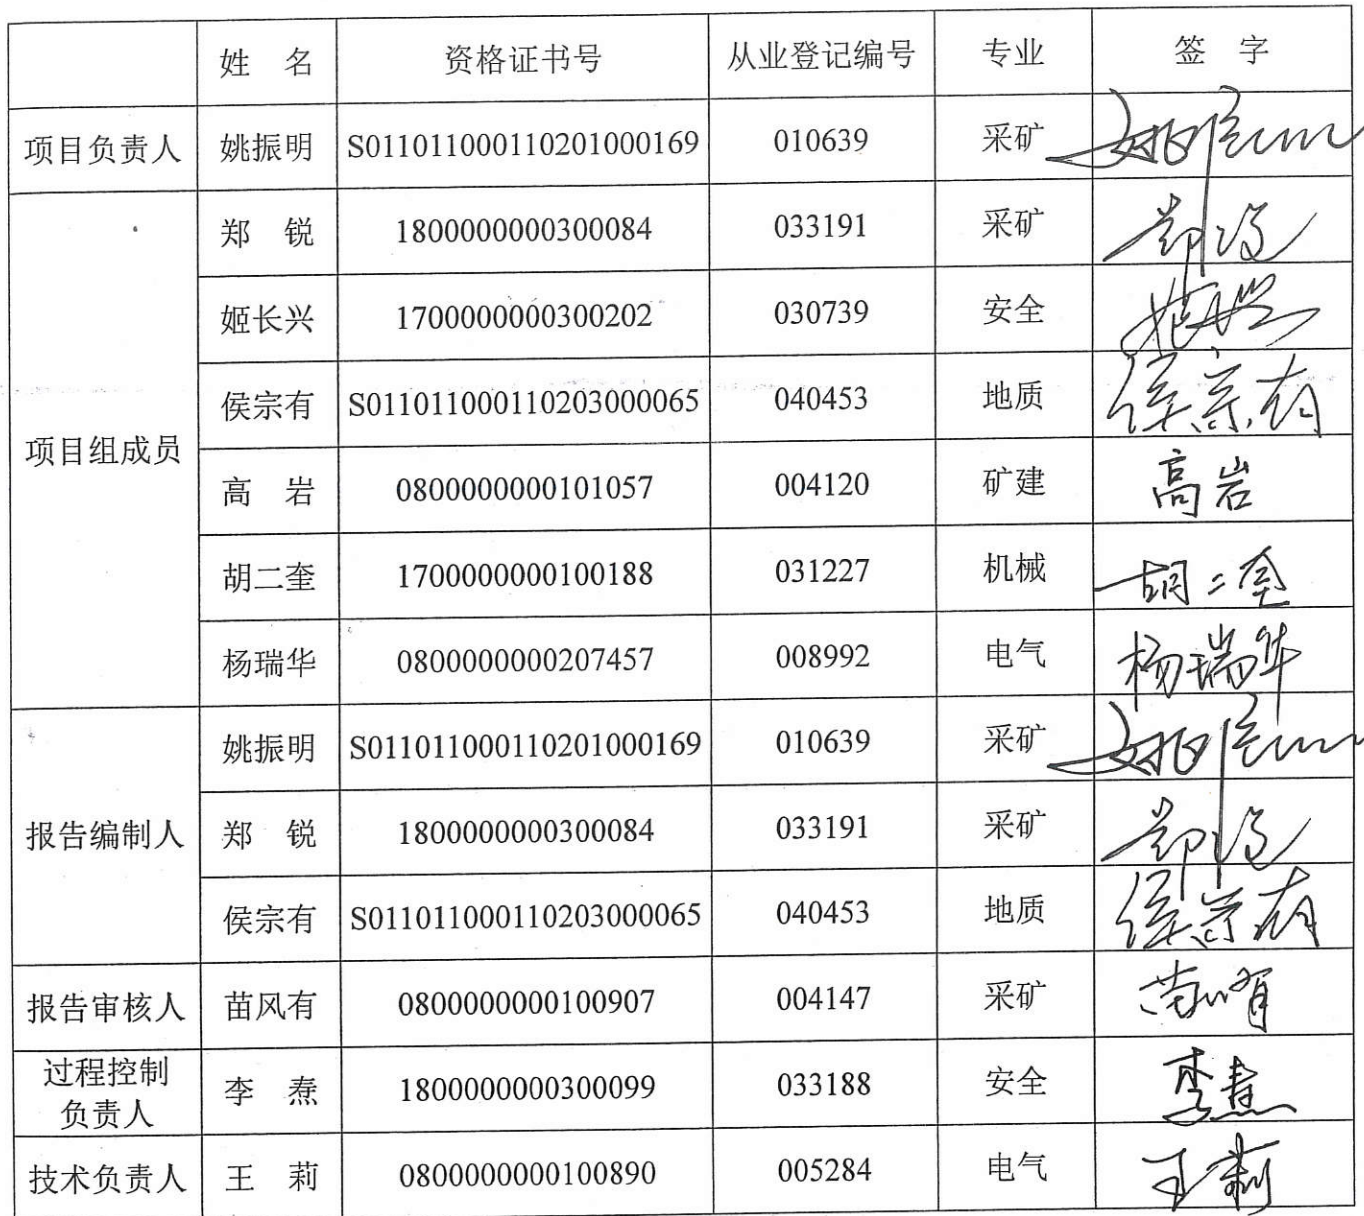 姓 名 资格证书号 从业登记编号 专业 签 字
项目负责人 姚振明 S011011000110201000169 010639 采矿 姚振明
项目组成员
郑 锐 1800000000300084 033191 采矿 郑锐
姬长兴 1700000000300202 030739 安全 姬长兴
侯宗有 S011011000110203000065 040453 地质 侯宗有
高 岩 0800000000101057 004120 矿建 高岩
胡二奎 1700000000100188 031227 机械 胡二奎
杨瑞华 0800000000207457 008992 电气 杨瑞华
报告编制人
姚振明 S011011000110201000169 010639 采矿 姚振明
郑 锐 1800000000300084 033191 采矿 郑锐
侯宗有 S011011000110203000065 040453 地质 侯宗有
报告审核人 苗风有 0800000000100907 004147 采矿 苗风有
过程控制
负责人 李 焘 1800000000300099 033188 安全 李焘
技术负责人 王 莉 0800000000100890 005284 电气 王莉